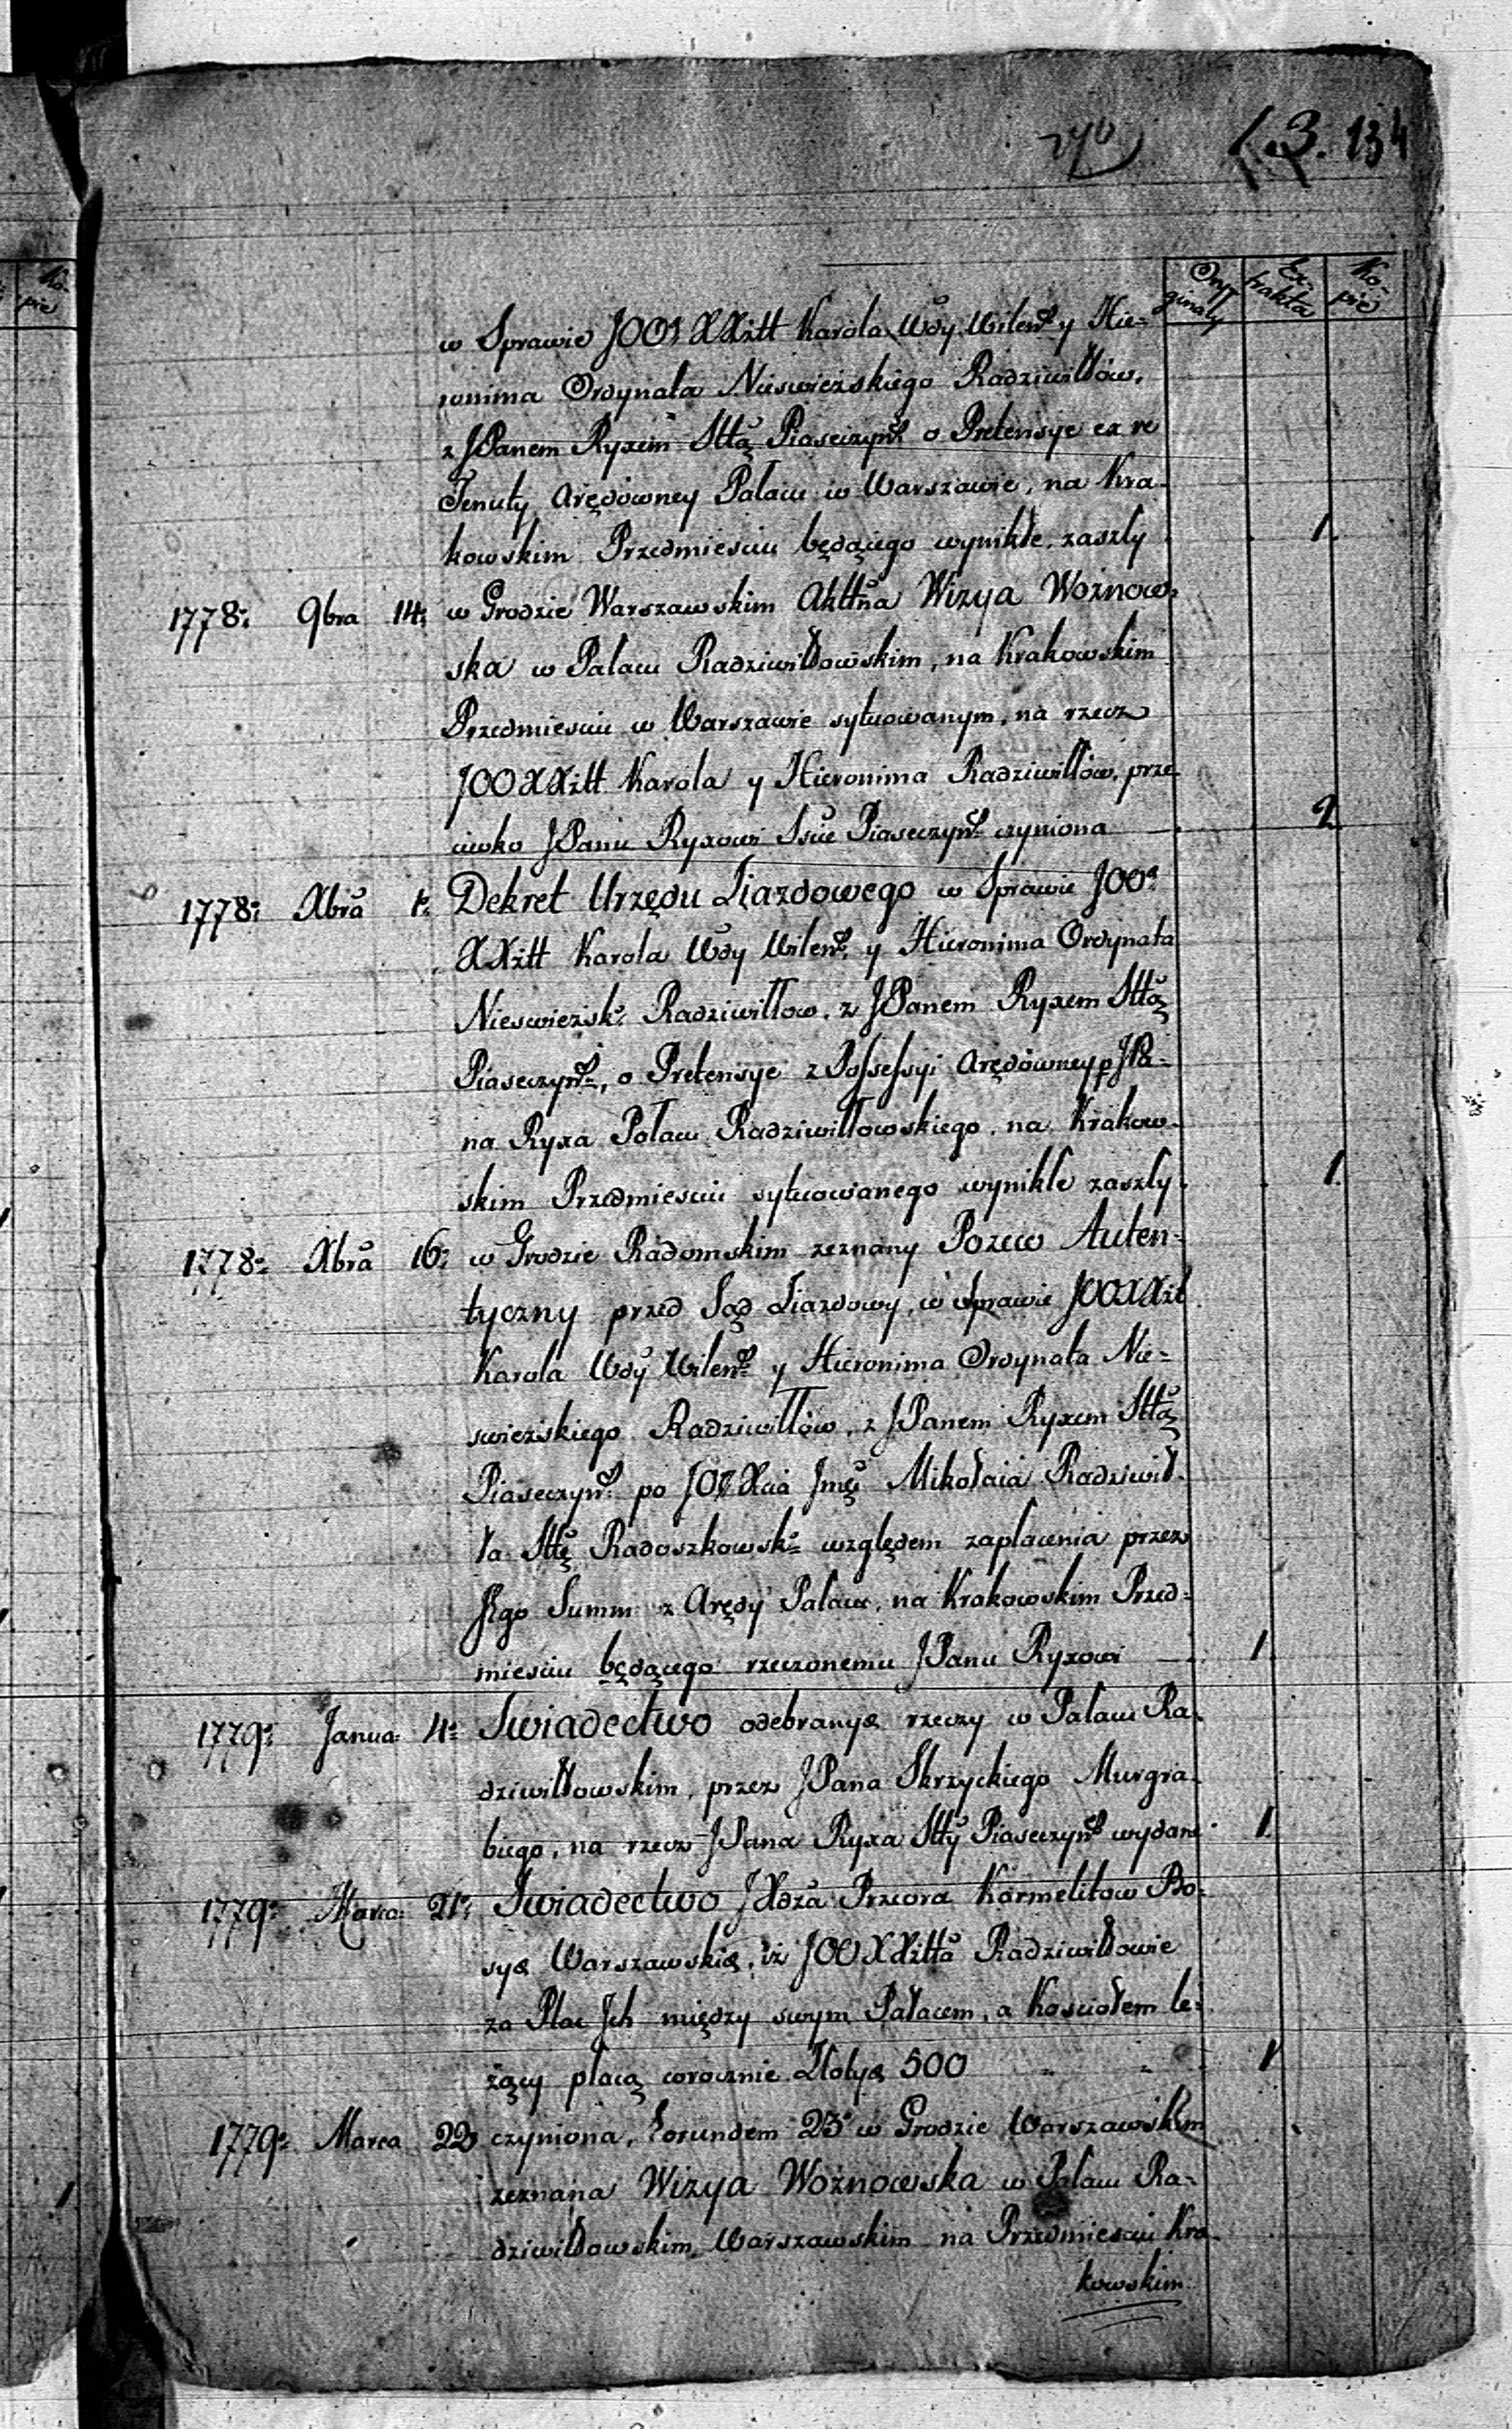 240
13. 134
Orygi- Ex- Ko-
ginały trakta pie
w Sprawie JOO: XXżtt Karola Wdy Wileń: y Hie-
ronima Ordynata Nieswieżskiego Radziwiłłów,
z JPanem Ryxem Sttą Piaseczyń: o Pretensye ex re
Tenuty Arędowney Pałacu w Warszawie, na Kra-
kowskim Przedmiesciu będącego wynikłe, zaszły 1.
1778: 9bra 14: w Grodzie Warszawskim Akttna Wizya Woznow-
ska w Pałacu Radziwiłłowskim, na Krakowskim
Przedmiesciu w Warszawie sytuowanym, na rzecz
JOOXXżtt Karola y Hieronima Radziwiłłow, prze
ciwko JPanu Ryxowi Sście Piaseczyń: czyniona 2.
1778: Xbra 1: Dekret Urzędu Ziazdowego w Sprawie JOO:
XXżtt Karola Wdy Wileń: y Hieronima Ordynata
Nieswieżsk: Radziwiłłow, z JPanem Ryxem Sttą
Piaseczyń:, o Pretensye z Possessyi Arędówney p JPa-
na Ryxa Pałacu Radziwiłłowskiego, na Krakow-
skim Przedmiesciu sytuowanego wynikłe zaszły 1.
1778: Xbra 16: w Grodzie Radomskim zeznany Pozew Auten-
tyczny przed Sąd Ziazdowy, w Sprawie JOOXXżtt
Karola Wdy Wileń: y Hieronima Ordynata Nie-
swieżskiego Radziwiłłów, z JPanem Ryxem Sttą
Piaseczyń: po JOXcia Jmci Mikołaia Radziwił-
ła Sttę Radoszkowsk: względem zapłacenia przez
Jego Summ z Arędy Pałacu, na Krakowskim Przed-
miesciu będącego rzeczonemu JPanu Ryxowi 1.
1779: Janua: 4: Swiadectwo odebranyą rzeczy w Pałacu Ra-
dziwiłłowskim, przez JPana Skrzyckiego Murgra-
biego, na rzecz JPana Ryxa Stty Piaseczyń: wydane 1.
1779: Marca: 21: Swiadectwo JXdza Przeora Karmelitow Bo-
syą Warszawskią, iż JOOXXżtta Radziwiłłowie
za Plac Ich między swym Pałacem, a Kosciołem le-
żący płacą corocznie Złotyą 500 " " 1
1779: Marca 22 czyniona, Eorundem 23: w Grodzie Warszawskim
zeznana Wizya Woznowska w Pałacu Ra-
dziwiłłowskim, Warszawskim na Przedmiesciu Kra-
kowskim